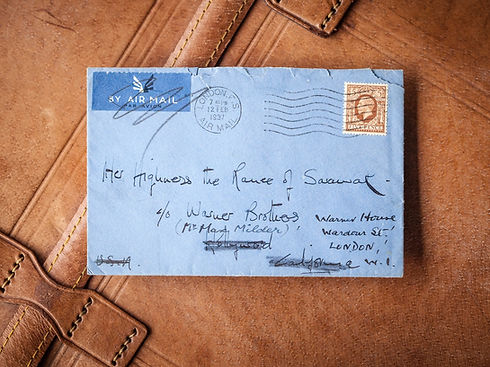 BY AIR MAIL
PAR AVION
LONDON F.S
7 15 PM
12 FEB
1937
AIR MAIL
Her Highness the Ranee of Sarawak -
c/o Warner Brothers
(Mr Max Milder)
Hollywood
California
U.S.A.
Warner House
Wardour St.
LONDON,
W.1.